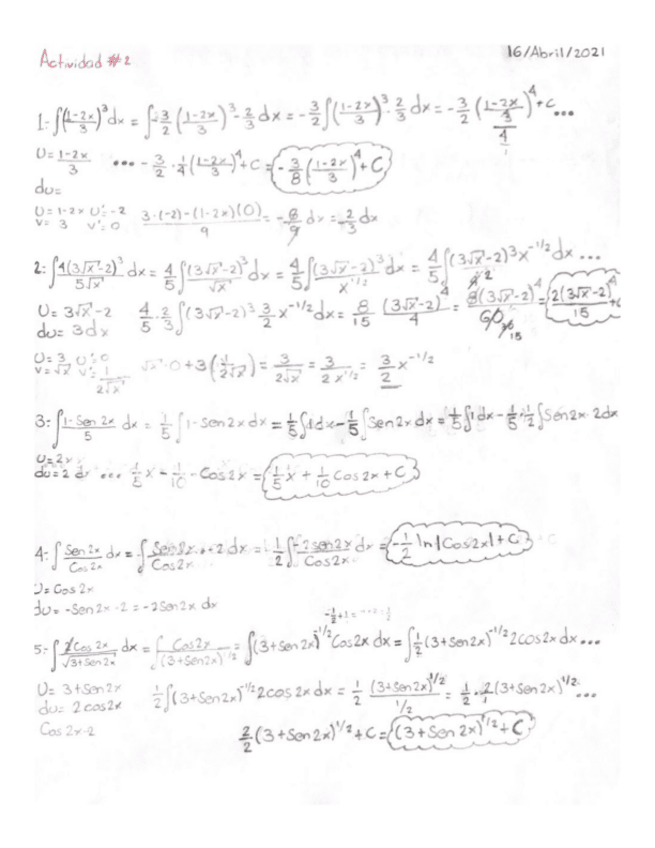 16/Abril/2021
Actividad #2
1-. ∫((1-2x)/3)³dx = ∫-3/2((1-2x)/3)³ -2/3 dx = -3/2∫((1-2x)/3)³ 2/3 dx = -3/2 ((1-2x)/3)⁴/4 + C ...
U= (1-2x)/3 ... -3/2 · 1/4((1-2x)/3)⁴+C = -3/8((1-2x)/3)⁴+C
du=
U= 1-2x U'= -2
V= 3 V'= 0 (3·(-2)-(1-2x)(0))/9 = -6/9 dx = -2/3 dx
2-. ∫4(3√x-2)³/5√x dx = 4/5∫(3√x-2)³/√x dx = 4/5∫(3√x-2)³/x^1/2 dx = 4/5∫(3√x-2)³x^-1/2 dx ...
U= 3√x-2 4/5 · 2/3∫(3√x-2)³ 3/2 x^-1/2 dx = 8/15 (3√x-2)⁴/4 = 8(3√x-2)⁴/60 = 2(3√x-2)⁴/15 +c
du= 3dx
U= 3 U'= 0
V= √x V'= 1/2√x √x·0+3(1/2√x) = 3/2√x = 3/2x^1/2 = 3/2 x^-1/2
3-. ∫(1-Sen 2x)/5 dx = 1/5∫1-Sen2x dx = 1/5∫1dx-1/5∫Sen2x dx = 1/5∫1dx-1/5·1/2∫Sen2x·2dx
U= 2x
du= 2 dx ... 1/5x - 1/10 - Cos2x = 1/5x + 1/10 Cos2x + C
4-. ∫Sen 2x/Cos 2x dx = ∫Sen2x · -2 dx/Cos2x = -1/2∫-2sen2x/Cos2x dx = -1/2 ln|Cos2x|+C
U= Cos 2x
du= -Sen2x · 2 = -2Sen2x dx
5-. ∫Cos 2x/√3+Sen 2x dx = ∫Cos2x/(3+Sen2x)^1/2 = ∫(3+Sen2x)^-1/2 Cos2x dx = ∫1/2(3+Sen2x)^-1/2 2cos2x dx ...
U= 3+Sen2x 1/2∫(3+Sen2x)^-1/2 2cos2x dx = 1/2 (3+Sen2x)^1/2/1/2 = 1/2 · 2/1(3+Sen2x)^1/2 ...
du= 2cos2x
Cos 2x·2 2/2(3+Sen2x)^1/2+C = (3+Sen2x)^1/2+C